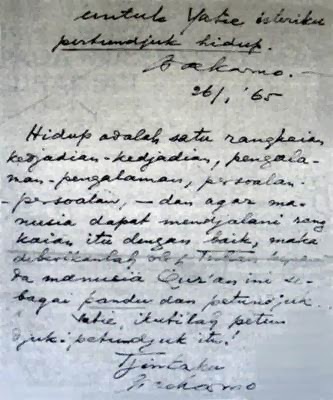 untuk Yatie isteriku
pertundjuk hidup.
Soekarno.-
26/1, '65
Hidup adalah satu rangkaian
kedjadian-kedjadian, pengala-
man-pengalaman, persoalan-
-persoalan, - dan agar ma-
nusia dapat mendjalani rang
kaian itu dengan baik, maka
diberikanlah oleh Tuhan kepa-
da manusia Qur'an ini se-
bagai pandu dan petundjuk.
Yatie, ikutilah petun
djuk-petundjuk itu!
Tjintaku
Soekarno